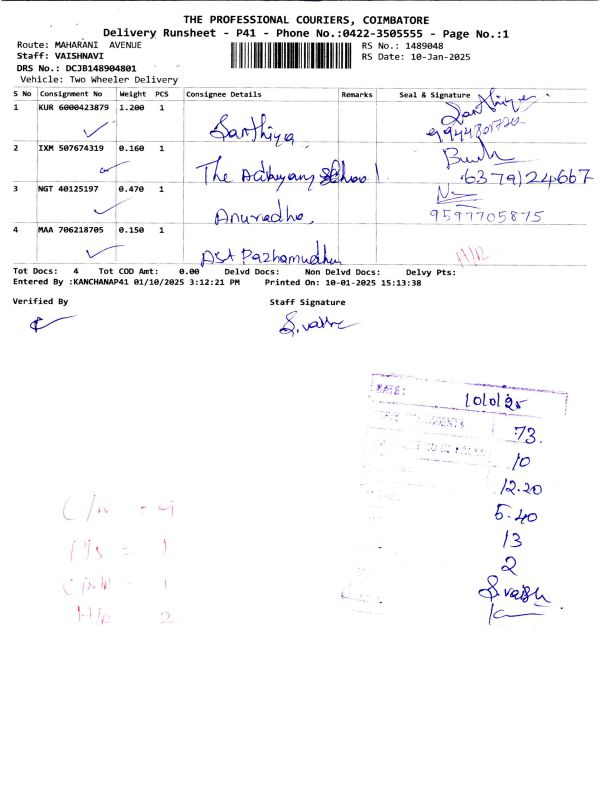 THE PROFESSIONAL COURIERS, COIMBATORE
Delivery Runsheet - P41 - Phone No.:0422-3505555 - Page No.:1
Route: MAHARANI AVENUE RS No.: 1489048
Staff: VAISHNAVI RS Date: 10-Jan-2025
DRS No.: DCJB148904801
Vehicle: Two Wheeler Delivery
S No Consignment No Weight PCS Consignee Details Remarks Seal & Signature
1 KUR 6000423879 1.200 1 Sarthiya Sarthiya
9944801720
2 IXM 507674319 0.160 1 The Adhyayana School
6379124667
3 NGT 40125197 0.470 1 Anuradha
9597705875
4 MAA 706218705 0.150 1 Ast Pazhamudhir
H/12
Tot Docs: 4 Tot COD Amt: 0.00 Delvd Docs: Non Delvd Docs: Delvy Pts:
Entered By :KANCHANAP41 01/10/2025 3:12:21 PM Printed On: 10-01-2025 15:13:38
Verified By Staff Signature
S.vaish
DATE: 10/01/25
73
10
12.20
5.40
13
2
S.vaish
C/n - 4
P/s = 1
= 1
H/R = 2